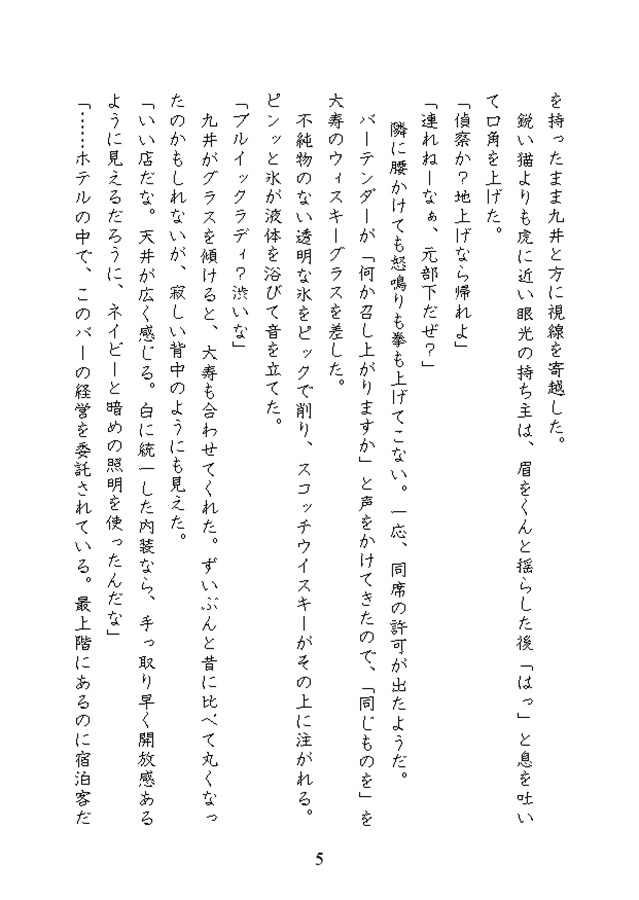 を持ったまま九井と方に視線を寄越した。
　鋭い猫よりも虎に近い眼光の持ち主は、眉をくんと揺らした後「はっ」と息を吐い
て口角を上げた。
「偵察か？地上げなら帰れよ」
「連れねーなぁ、元部下だぜ？」
　隣に腰かけても怒鳴りも拳も上げてこない。一応、同席の許可が出たようだ。
　バーテンダーが「何か召し上がりますか」と声をかけてきたので、「同じものを」を
大寿のウィスキーグラスを差した。
　不純物のない透明な氷をピックで削り、スコッチウイスキーがその上に注がれる。
ピンッと氷が液体を浴びて音を立てた。
「ブルイックラディ？渋いな」
　九井がグラスを傾けると、大寿も合わせてくれた。ずいぶんと昔に比べて丸くなっ
たのかもしれないが、寂しい背中のようにも見えた。
「いい店だな。天井が広く感じる。白に統一した内装なら、手っ取り早く開放感ある
ように見えるだろうに、ネイビーと暗めの照明を使ったんだな」
「……ホテルの中で、このバーの経営を委託されている。最上階にあるのに宿泊客だ
5